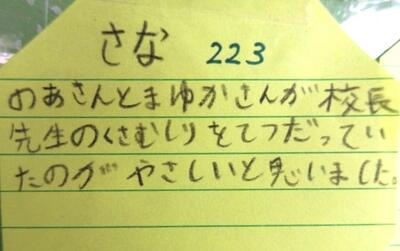 さな 223
のあさんとまゆかさんが校長
先生のくさむしりをてつだってい
たのがやさしいと思いました。